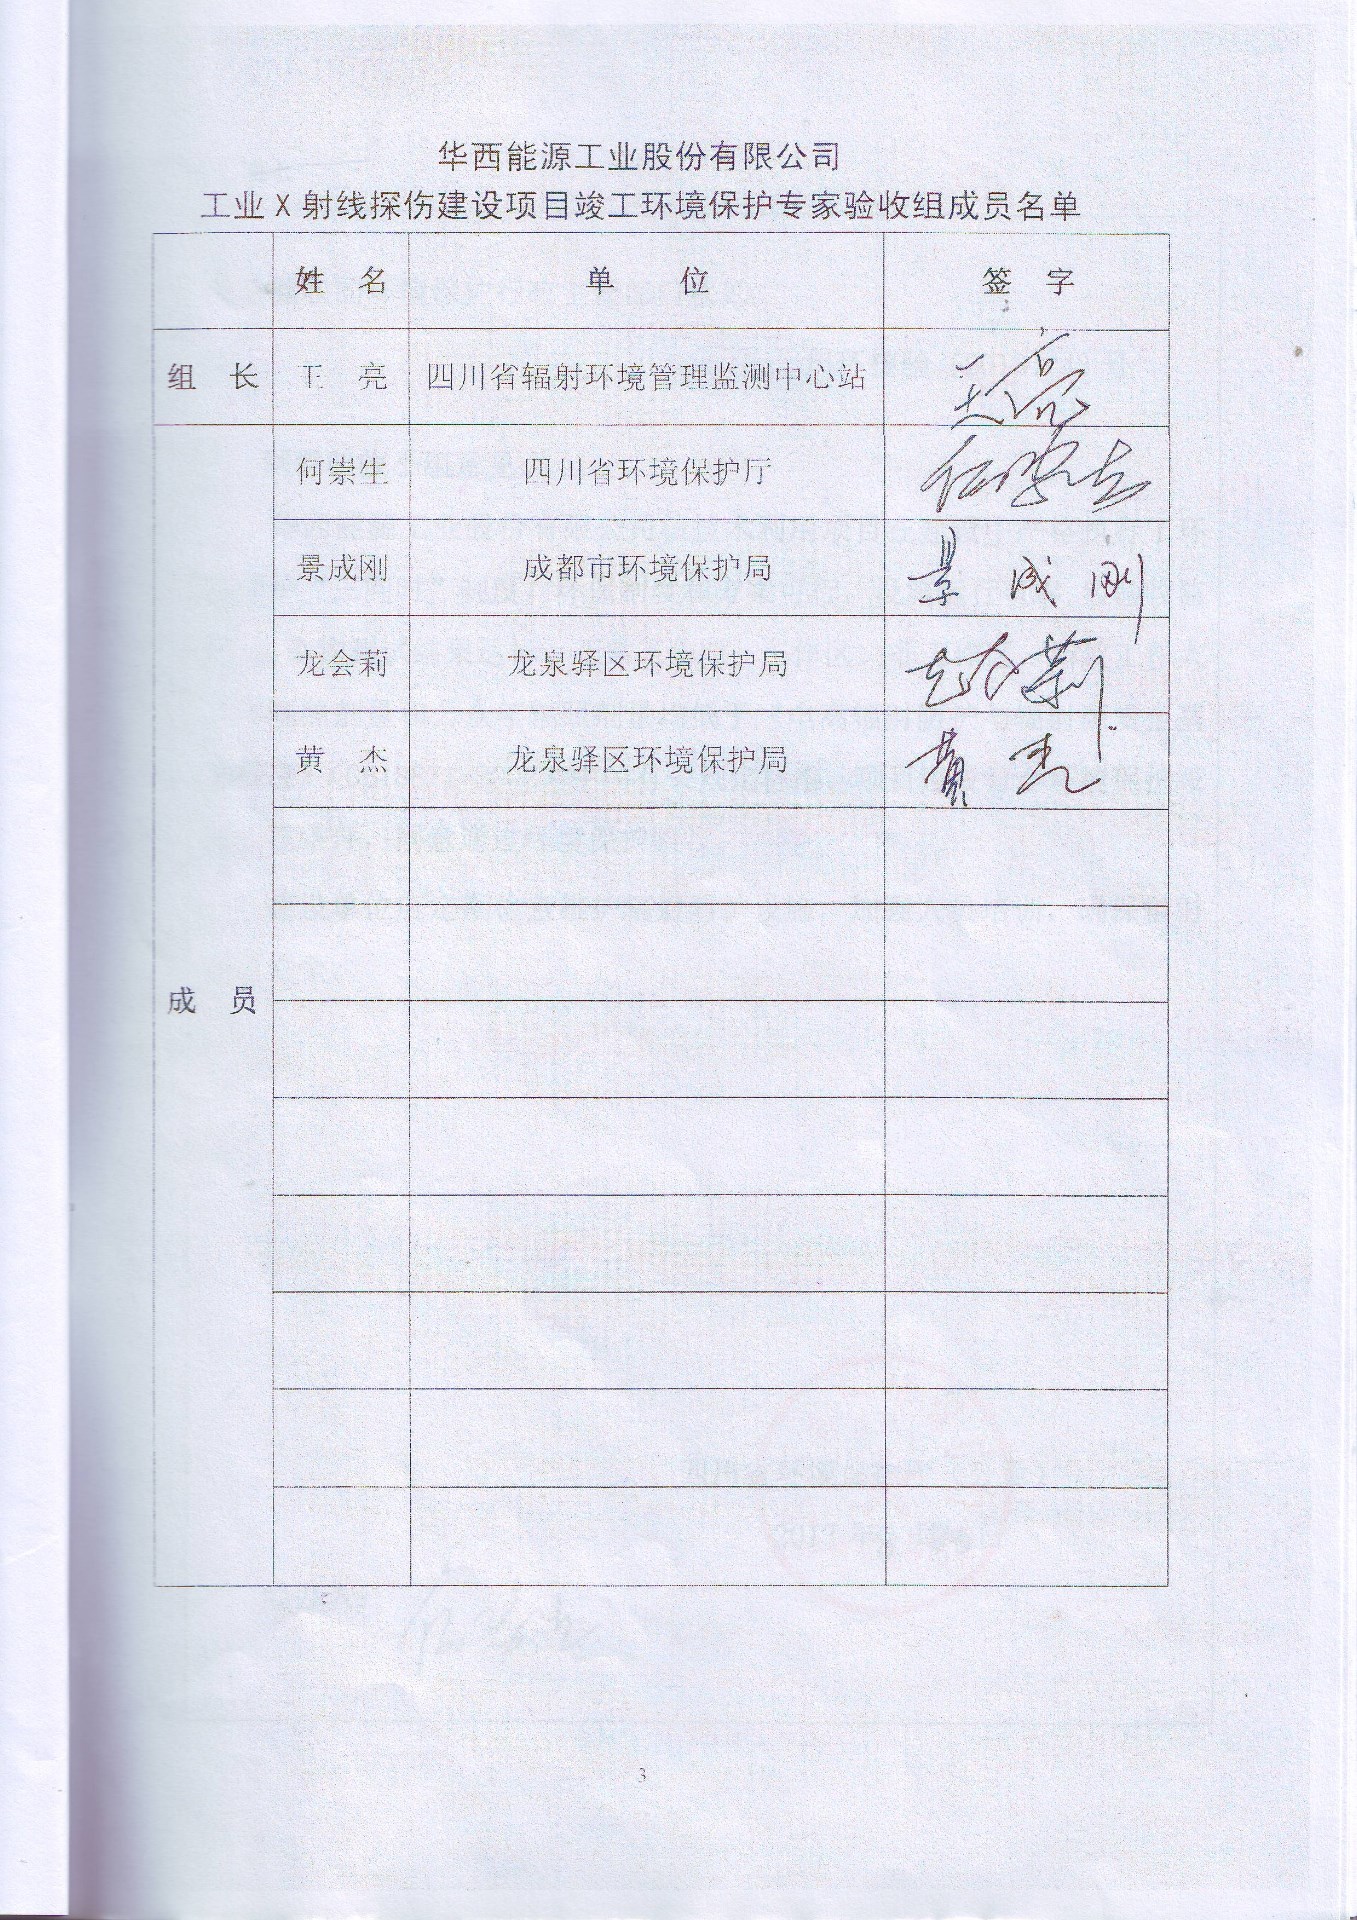 华西能源工业股份有限公司
工业 X 射线探伤建设项目竣工环境保护专家验收组成员名单
姓 名 单 位 签 字
组 长 王 亮 四川省辐射环境管理监测中心站 王亮
何崇生 四川省环境保护厅
景成刚 成都市环境保护局 景成刚
龙会莉 龙泉驿区环境保护局
黄 杰 龙泉驿区环境保护局 黄杰
成 员
3